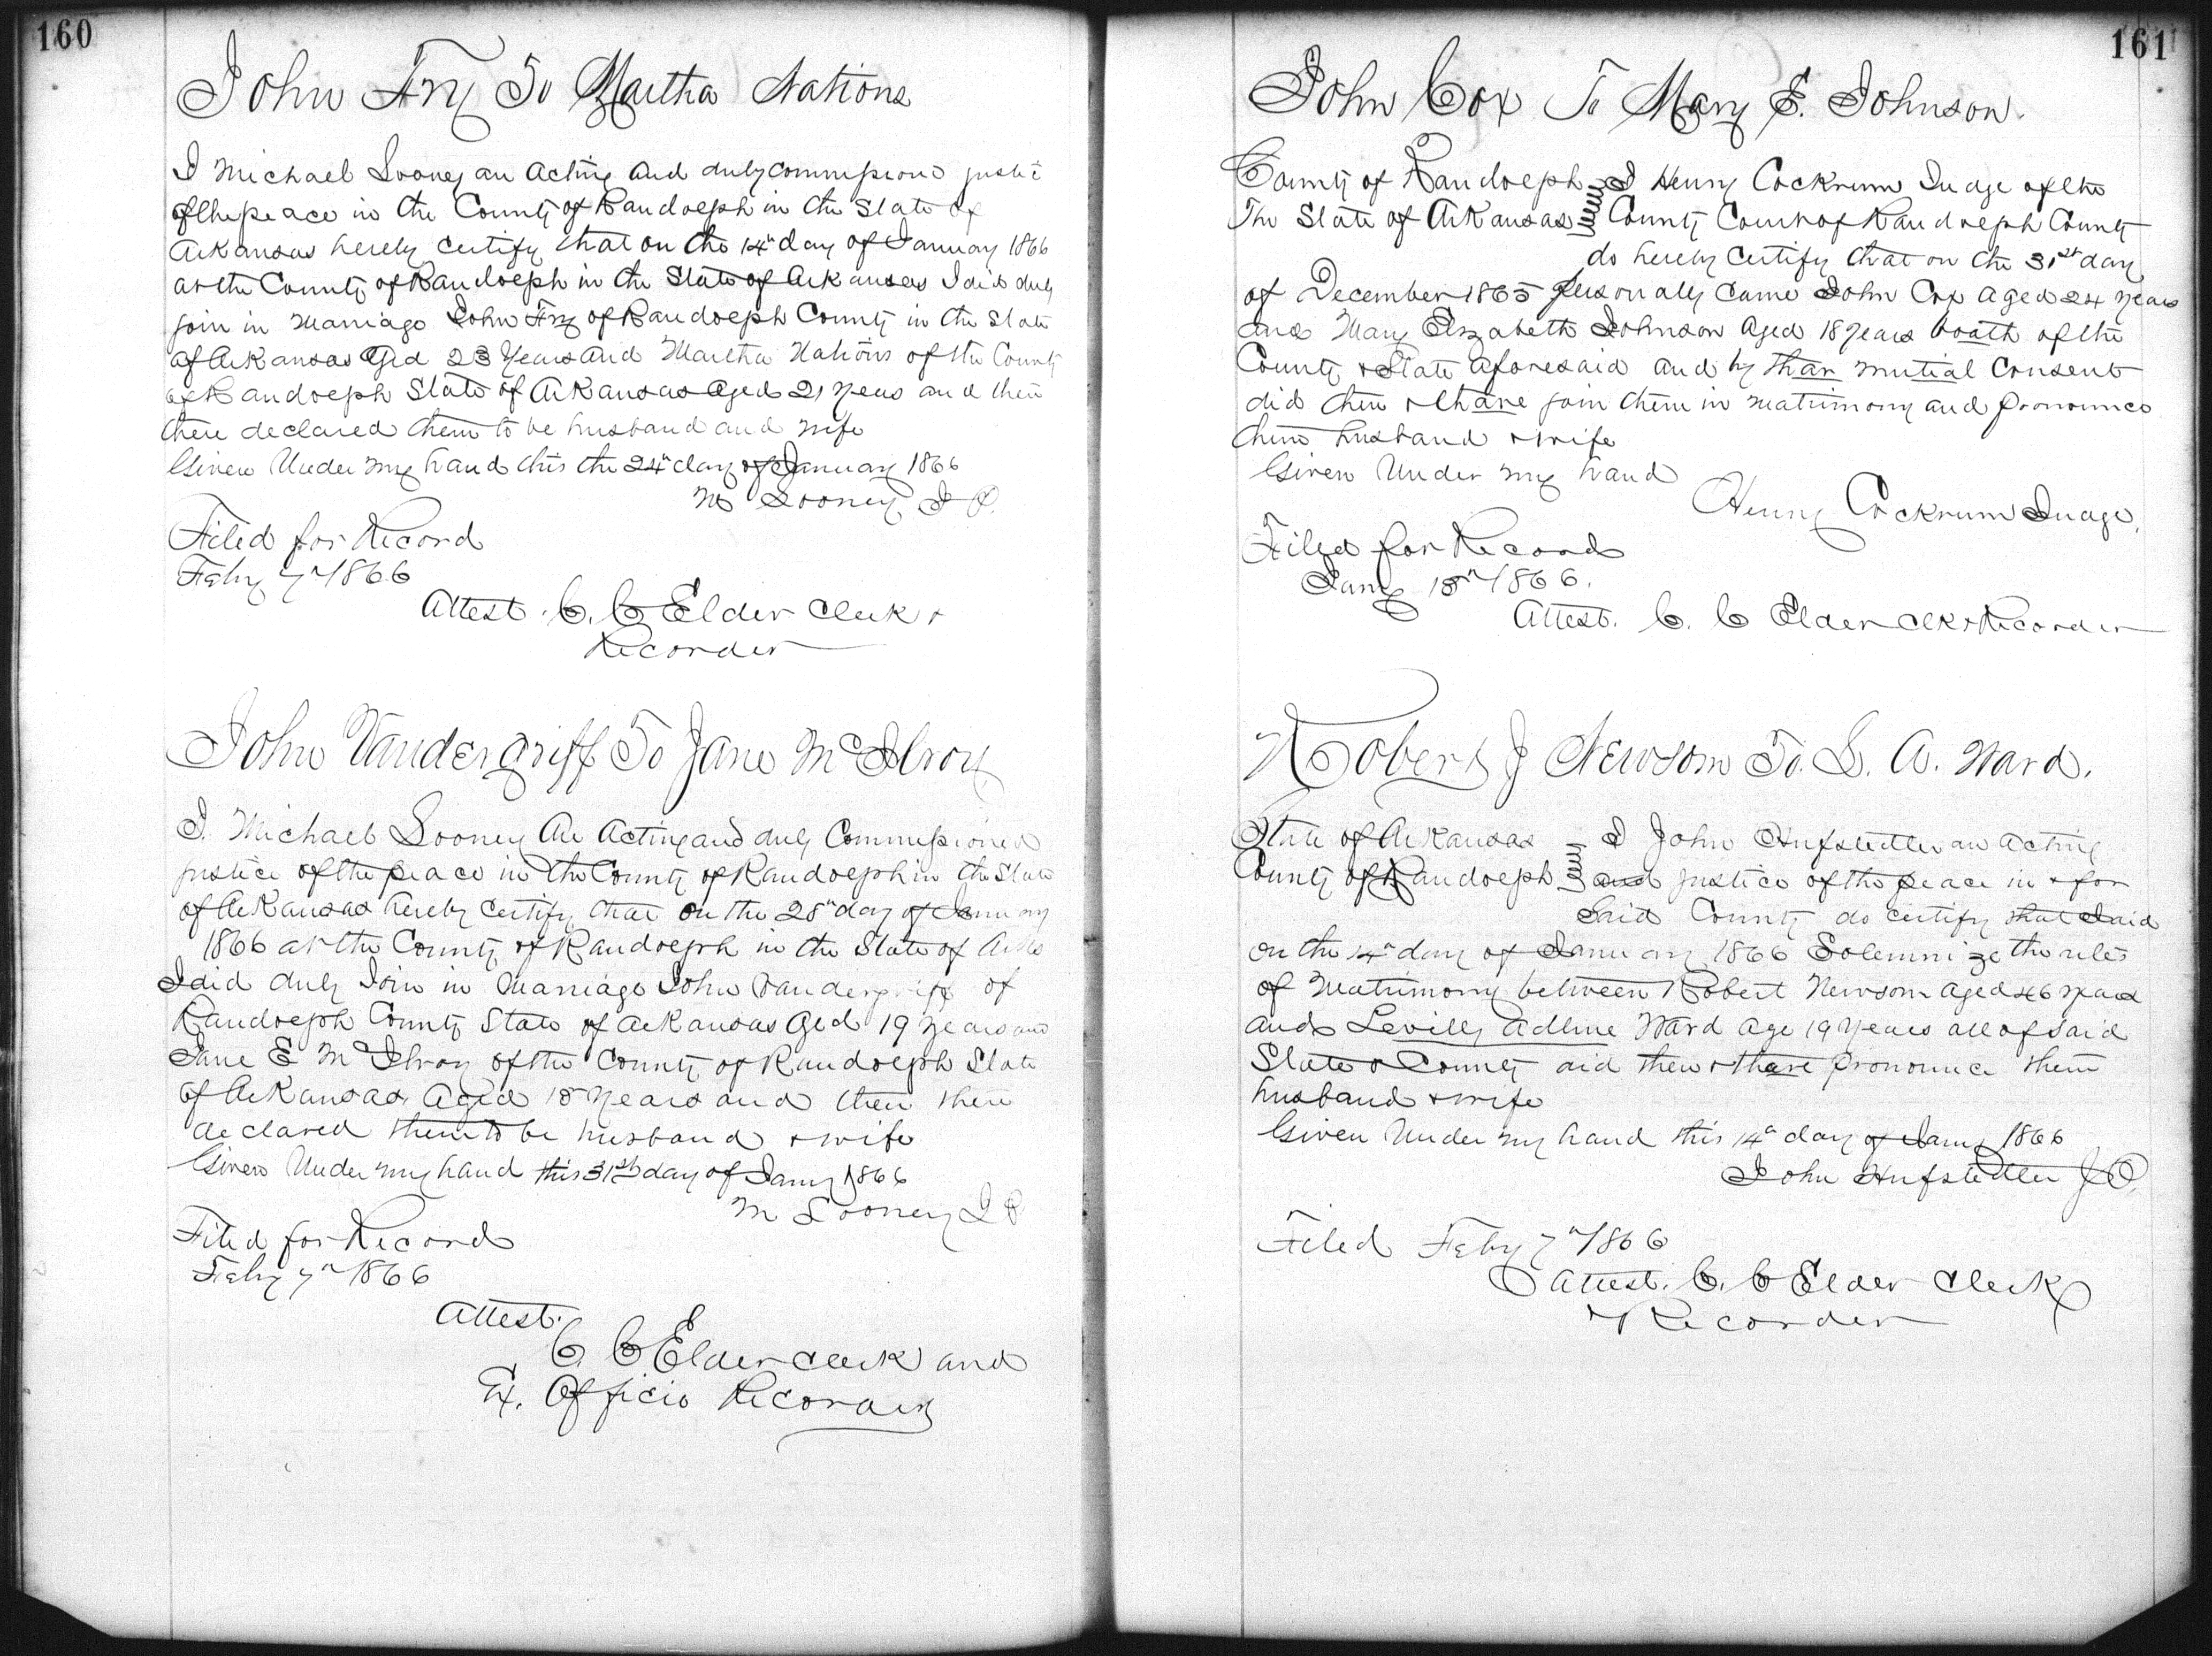 160
John Fry To Martha Nations
I Michael Looney an Acting and duly commissioned justice
of the peace in the County of Randolph in the State of
Arkansas hereby certify that on the 14th day of January 1866
at the County of Randolph in the State of Arkansas I did duly
join in Marriage John Fry of Randolph County in the State
of Arkansas Aged 23 Years and Martha Nations of the County
of Randolph State of Arkansas Aged 21 years and then
there declared them to be husband and wife
Given Under my hand this the 24th day of January 1866
M Looney J P.
Filed for Record
Feby 7th 1866
Attest. C. C Elder Clerk &
Recorder
John Vandergriff To Jane McIlroy
I. Michael Looney An Acting and duly Commissioned
justice of the peace in the County of Randolph in the State
of Arkansas hereby certify that on the 28th day of January
1866 at the County of Randolph in the State of Arks
I did duly Join in Marriage John Vandergriff of
Randolph County State of Arkansas Aged 19 years and
Jane E McIlroy of the County of Randolph State
of Arkansas, Aged 18 Years and then there
declared them to be husband & wife
Given Under my hand this 31st day of Jany 1866
M Looney J P
Filed for Record
Feby 7th 1866
Attest.
C. C Elder Clerk and
Ex. Officio Recorder
161
John Cox To Mary E. Johnson.
County of Randolph I Henry Cockrum Judge of the
The State of Arkansas County Court of Randolph County
do hereby certify that on the 31st day
of December 1865 personally came John Cox Aged 24 years
and Mary Elizabeth Johnson Aged 18 years boath of the
County & State aforesaid and by thar mutial consent
did then & thare join them in matrimony and pronounce
them husband & wife
Given Under my hand
Henry Cockrum Judge.
Filed for Record
Jany 18th 1866.
Attest. C. C Elder Clk & Recorder
Robert J Newsom To. L. A. Ward.
State of Arkansas I John Hufstedler an acting
County of Randolph and justice of the peace in & for
Said County do certify that I did
on the 14th day of January 1866 Solemnize the rites
of Matrimony between Robert Newsom aged 46 years
and Levilly Adline Ward age 19 Years all of said
State & County did then & thare pronounce them
husband & wife
Given Under my hand this 14th day of Jany 1866
John Hufstedler J P.
Filed Feby 7th 1866
Attest. C. C Elder Clerk
& Recorder